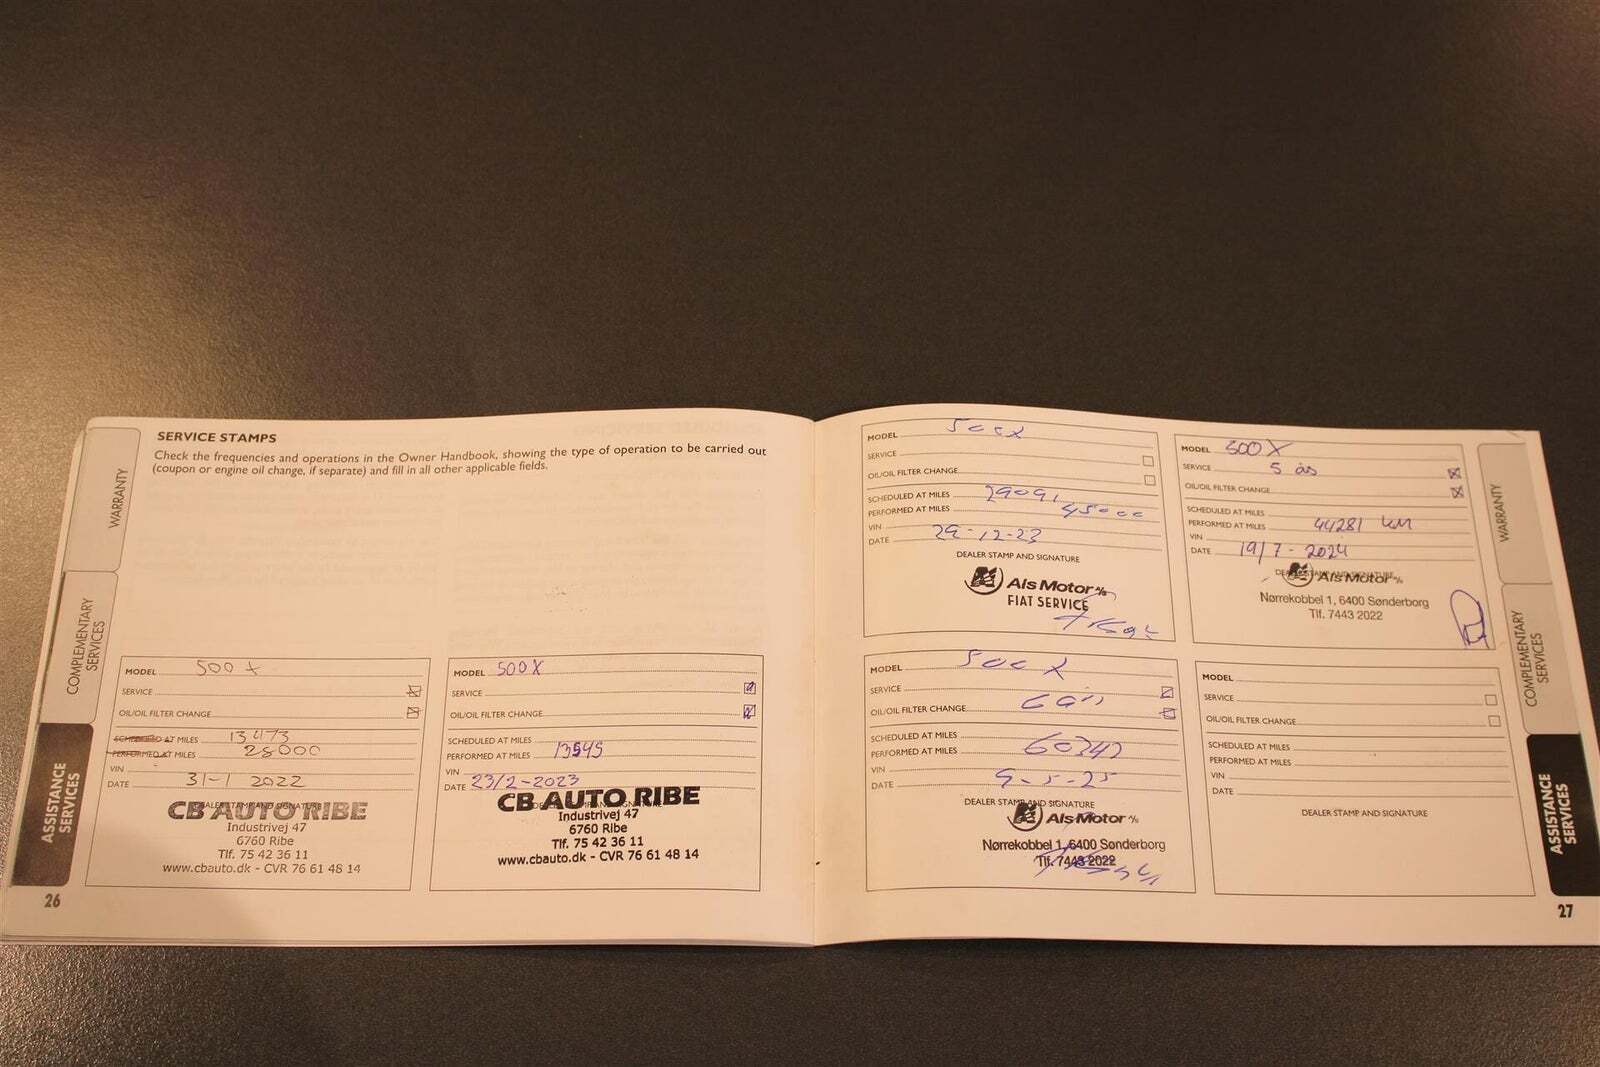 SERVICE STAMPS
Check the frequencies and operations in the Owner Handbook, showing the type of operation to be carried out
(coupon or engine oil change, if separate) and fill in all other applicable fields.
WARRANTY
COMPLEMENTARY
SERVICES
ASSISTANCE
SERVICES
MODEL 500 X
SERVICE
OIL/OIL FILTER CHANGE
SCHEDULED AT MILES 13473
PERFORMED AT MILES 28000
VIN
DATE 31-1 2022
DEALER STAMP AND SIGNATURE
CB AUTO RIBE
Industrivej 47
6760 Ribe
Tlf. 75 42 36 11
www.cbauto.dk - CVR 76 61 48 14
MODEL 500X
SERVICE
OIL/OIL FILTER CHANGE
SCHEDULED AT MILES
PERFORMED AT MILES 13545
VIN
DATE 23/2-2023
DEALER STAMP AND SIGNATURE
CB AUTO RIBE
Industrivej 47
6760 Ribe
Tlf. 75 42 36 11
www.cbauto.dk - CVR 76 61 48 14
26
MODEL 500X
SERVICE
OIL/OIL FILTER CHANGE
SCHEDULED AT MILES 29091
PERFORMED AT MILES 45000
VIN
DATE 29-12-23
DEALER STAMP AND SIGNATURE
Als Motor A/S
FIAT SERVICE
MODEL 500X
SERVICE 5 års
OIL/OIL FILTER CHANGE
SCHEDULED AT MILES
PERFORMED AT MILES 44281 km
VIN
DATE 19/7-2024
DEALER STAMP AND SIGNATURE
Als Motor A/S
Nørrekobbel 1, 6400 Sønderborg
Tlf. 7443 2022
MODEL 500 X
SERVICE
OIL/OIL FILTER CHANGE
SCHEDULED AT MILES
PERFORMED AT MILES
VIN
DATE 9-5-25
DEALER STAMP AND SIGNATURE
Als Motor A/S
Nørrekobbel 1, 6400 Sønderborg
Tlf. 7443 2022
MODEL
SERVICE
OIL/OIL FILTER CHANGE
SCHEDULED AT MILES
PERFORMED AT MILES
VIN
DATE
DEALER STAMP AND SIGNATURE
WARRANTY
COMPLEMENTARY
SERVICES
ASSISTANCE
SERVICES
27